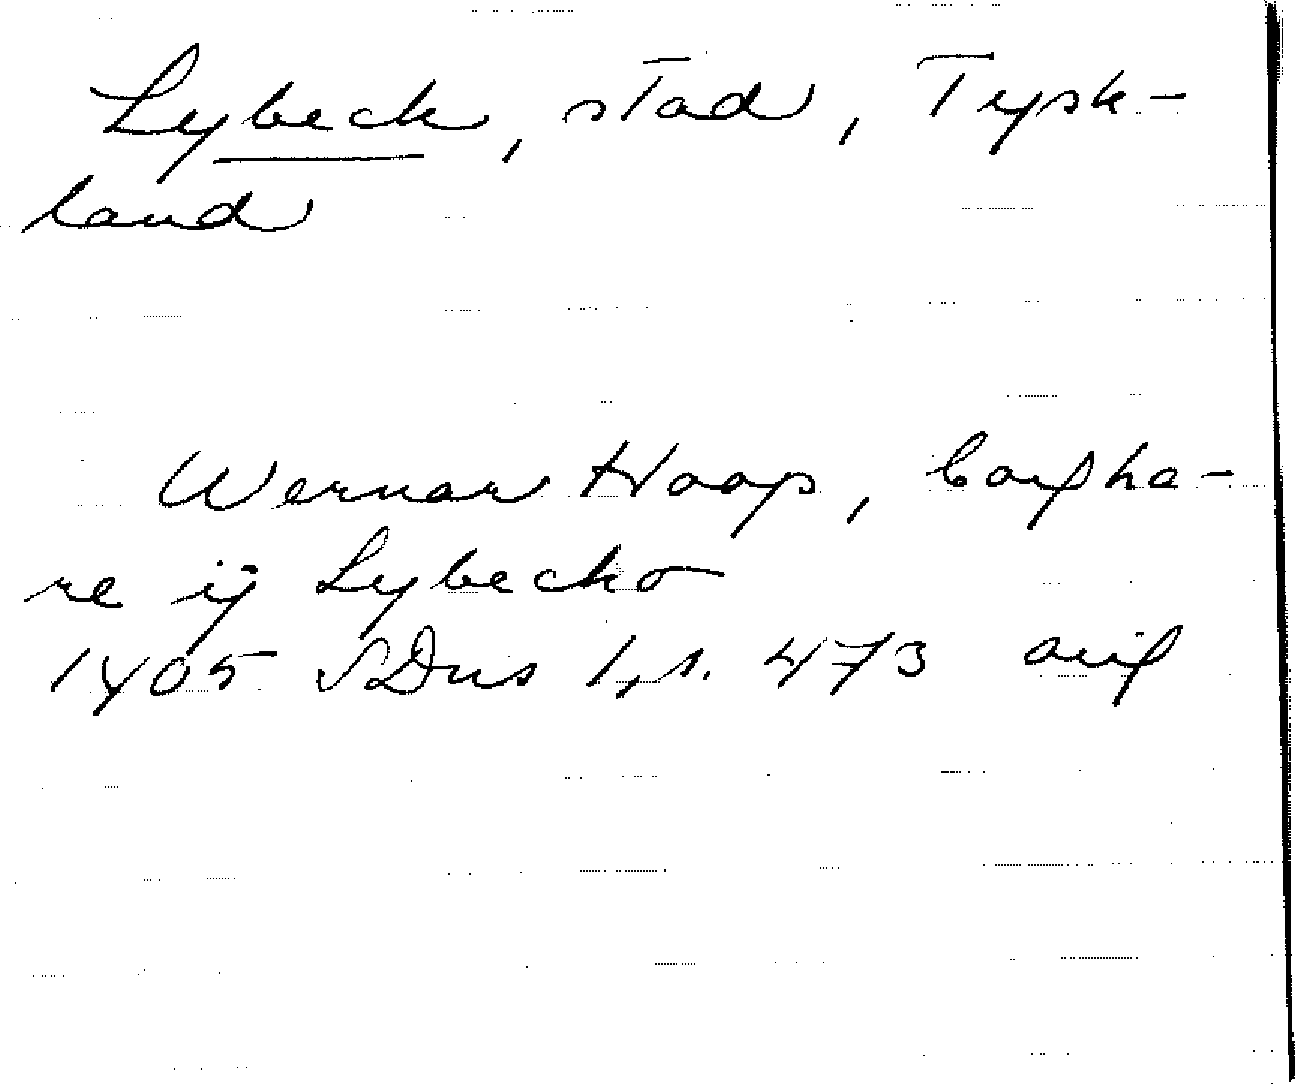 Lybeck, stad, Tysk-
land
Wernar Hoop, borgha-
re ij Lybecko
1405 SDns 1, s. 473 avf